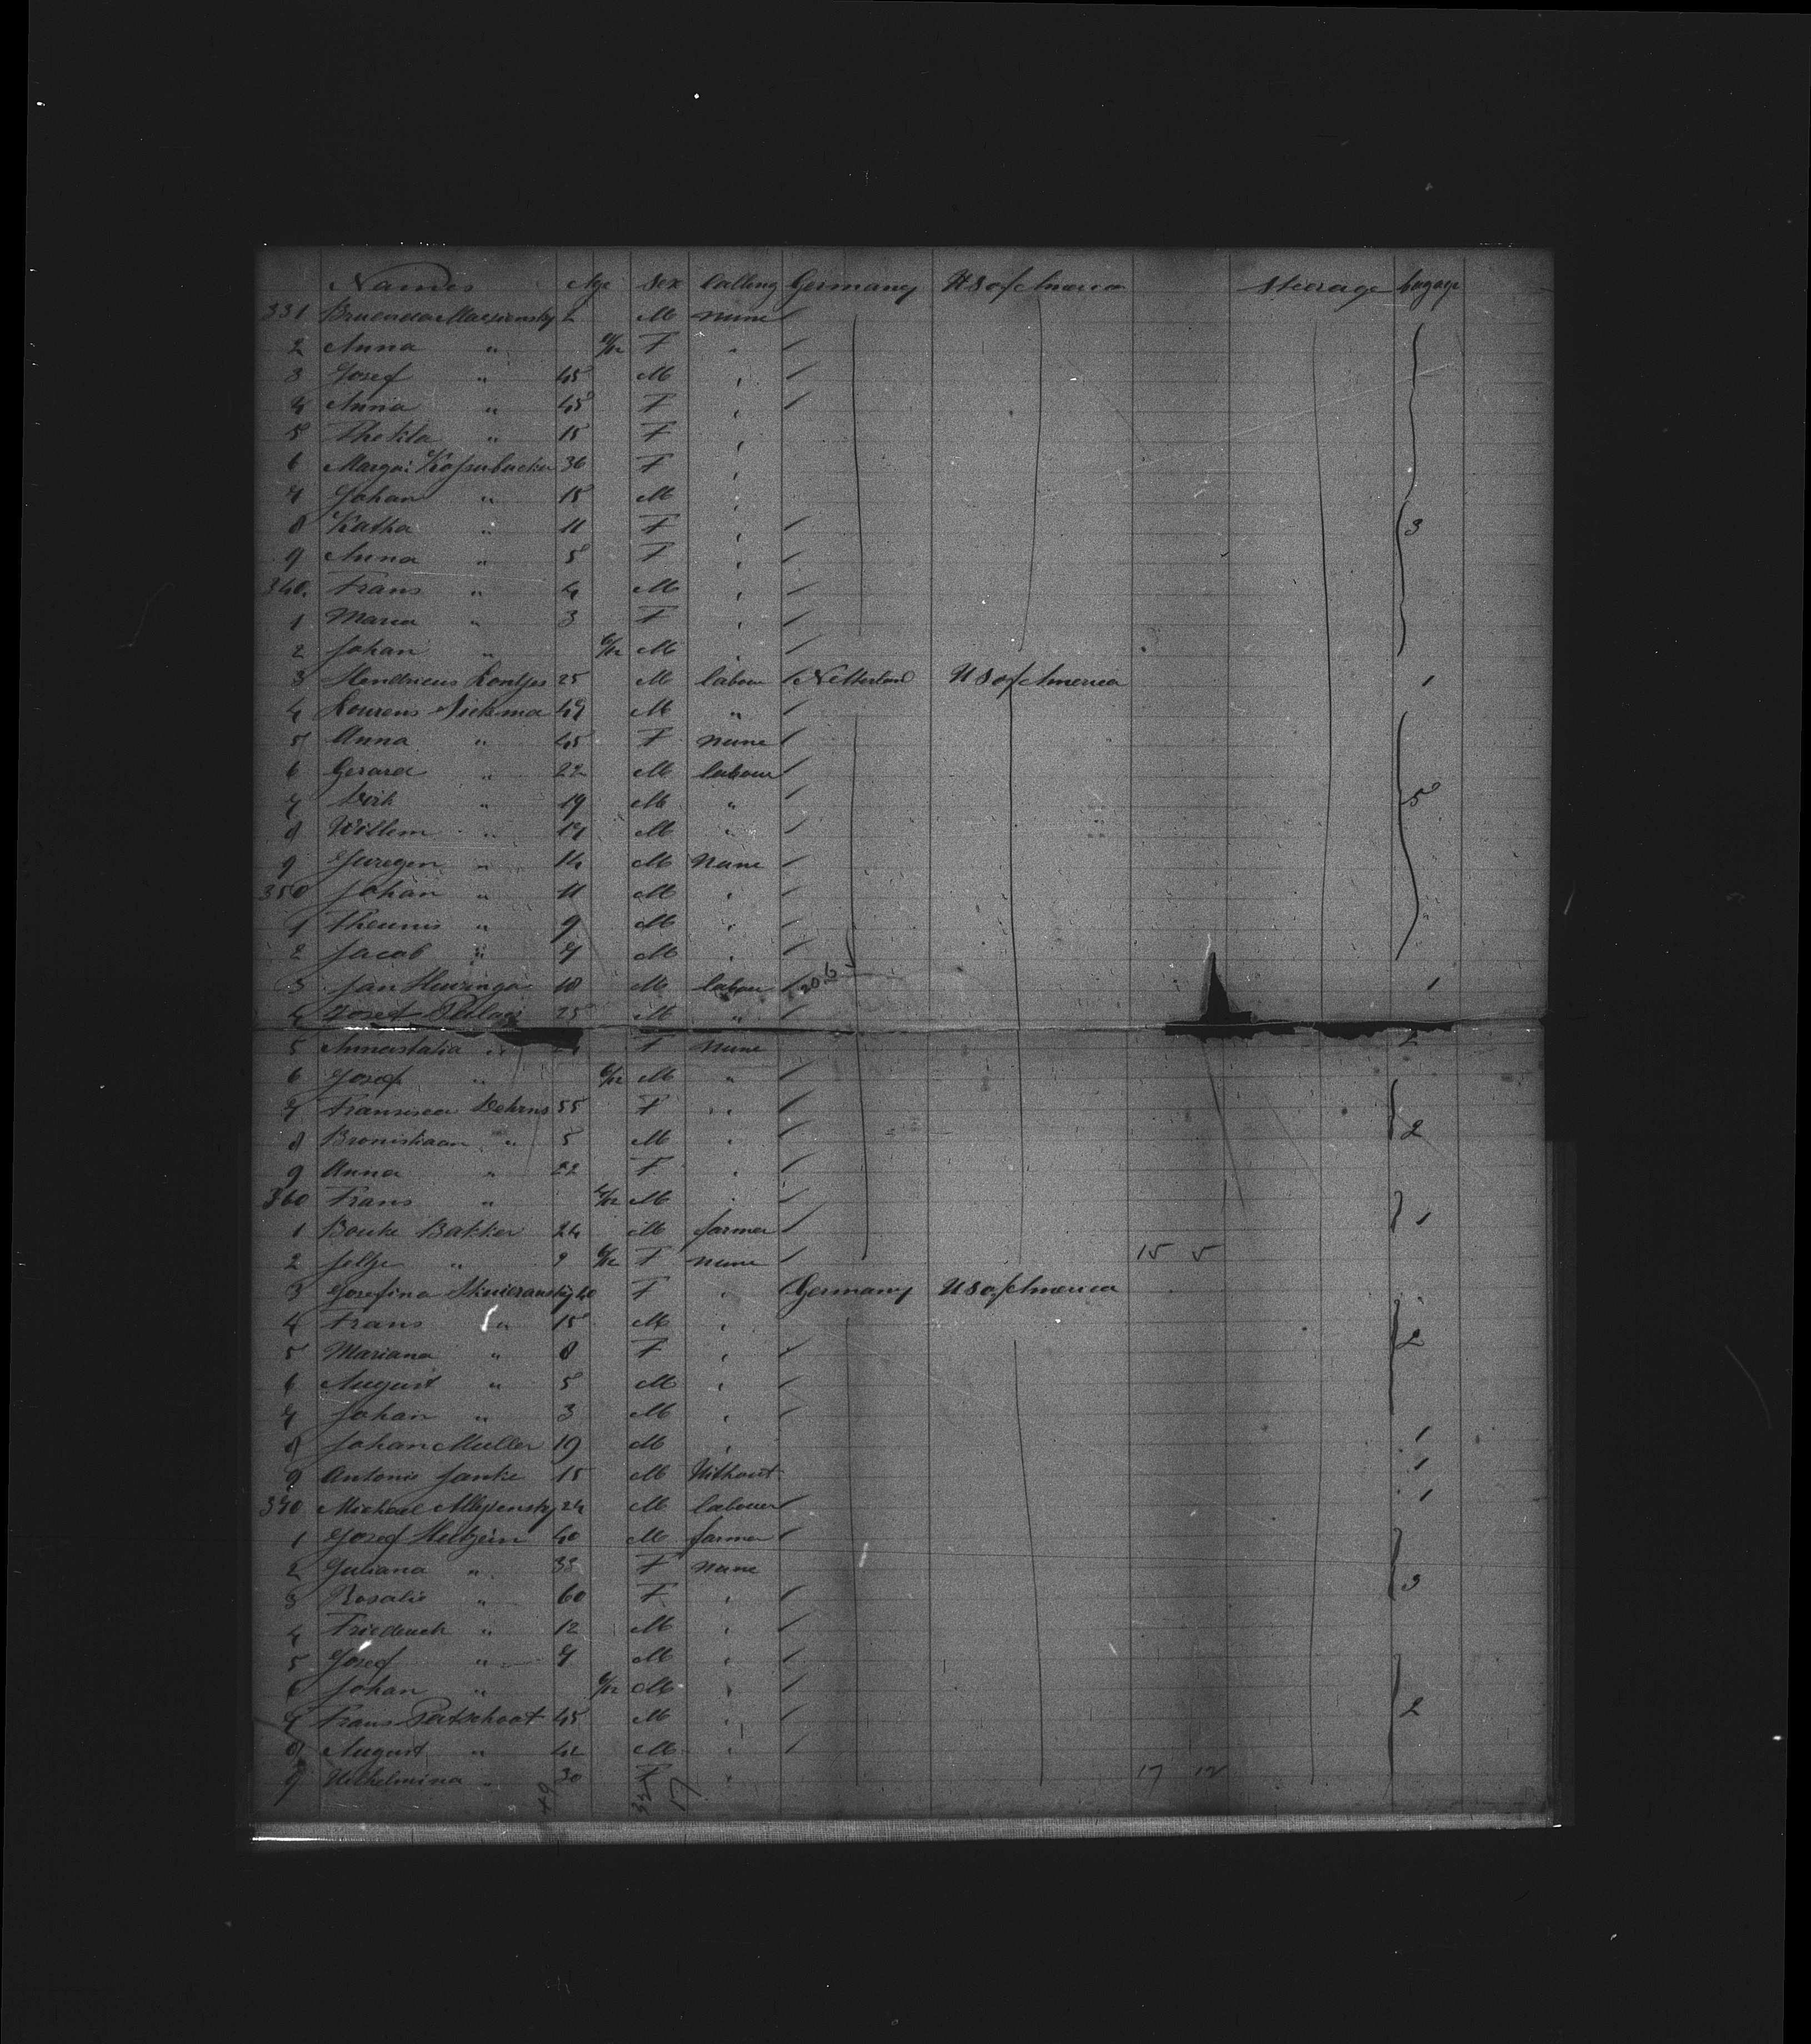 Names Age Sex Calling Germany U S of America Steerage bagage
331 2 M none
2 Anna " /12 F "
3 Josef " 45 M "
4 Anna " 45 F "
5 Thekla " 15 F "
6 Margar: 36 F "
7 Johan " 15 M "
8 Katha " 11 F " 3
9 Anna " 5 F "
340. Frans " 4 M "
1 Maria " 3 F "
2 Johan " 6/12 M "
3 Hendricus Lontjes 25 M labour Netterland U S of America 1
4 Lourens 49 M "
5 Anna " 45 F none
6 Gerard " 22 M labour
7 Dirk " 19 M " 5
8 Willem " 17 M "
9 Juregen " 14 M none
350 Johan " 11 M "
1 Theunis " 9 M "
2 Jacob " 7 M "
3 Jan Huizinga 18 M labour 20.6 1
4 Josef 25 M "
5 Annastatia " F none 2
6 Josef " 6/12 M "
7 Fransisca 55 F "
8 " 5 M " 2
9 Anna " 22 F "
360 Frans " /12 M "
1 Bouke Bakker 24 M farmer 1
2 Jeltje " 6/12 F none 15 5
3 Josefina 40 F " Germany U S of America
4 Frans " 15 M "
5 Mariana " 8 F " 2
6 August " 5 M "
7 Johan " 3 M "
8 Johan Muller 19 M " 1
9 Antonie Janke 15 M Without 1
370 Michael 24 M labouer 1
1 Josef 40 M farmer
2 Juliana " F none
3 Rosalie " 60 F " 3
4 Friederich " 12 M "
5 Josef " 7 M "
6 Johan " 6/12 M "
7 Frans 45 M " 2
8 August " 42 M "
9 Wilhelmina " 30 F " 17 12
49 32 17